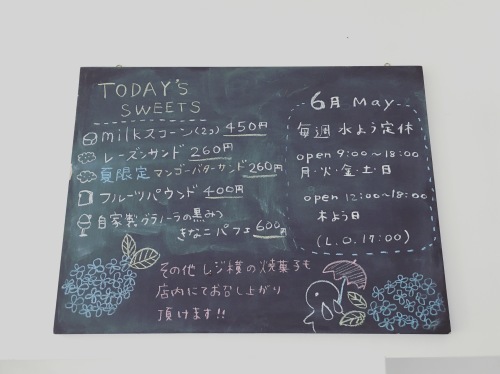 TODAY'S
SWEETS
milkスコーン(2コ) 450円
レーズンサンド 260円
夏限定 マンゴーバターサンド 260円
フルーツパウンド 400円
自家製グラノーラの黒みつ
きなこパフェ 600円
その他 レジ横の焼菓子も
店内にてお召し上がり
頂けます!!
6月 May
毎週 水よう定休
open 9:00~18:00
月・火・金・土・日
open 12:00~18:00
木よう日
(L.O.17:00)